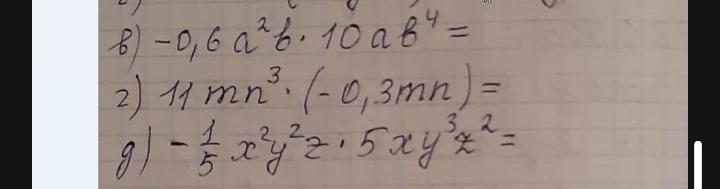 в) -0,6 a²b · 10 ab⁴ =
г) 11 mn³ · (-0,3mn) =
д) - 1/5 x²y²z · 5xy³z² =